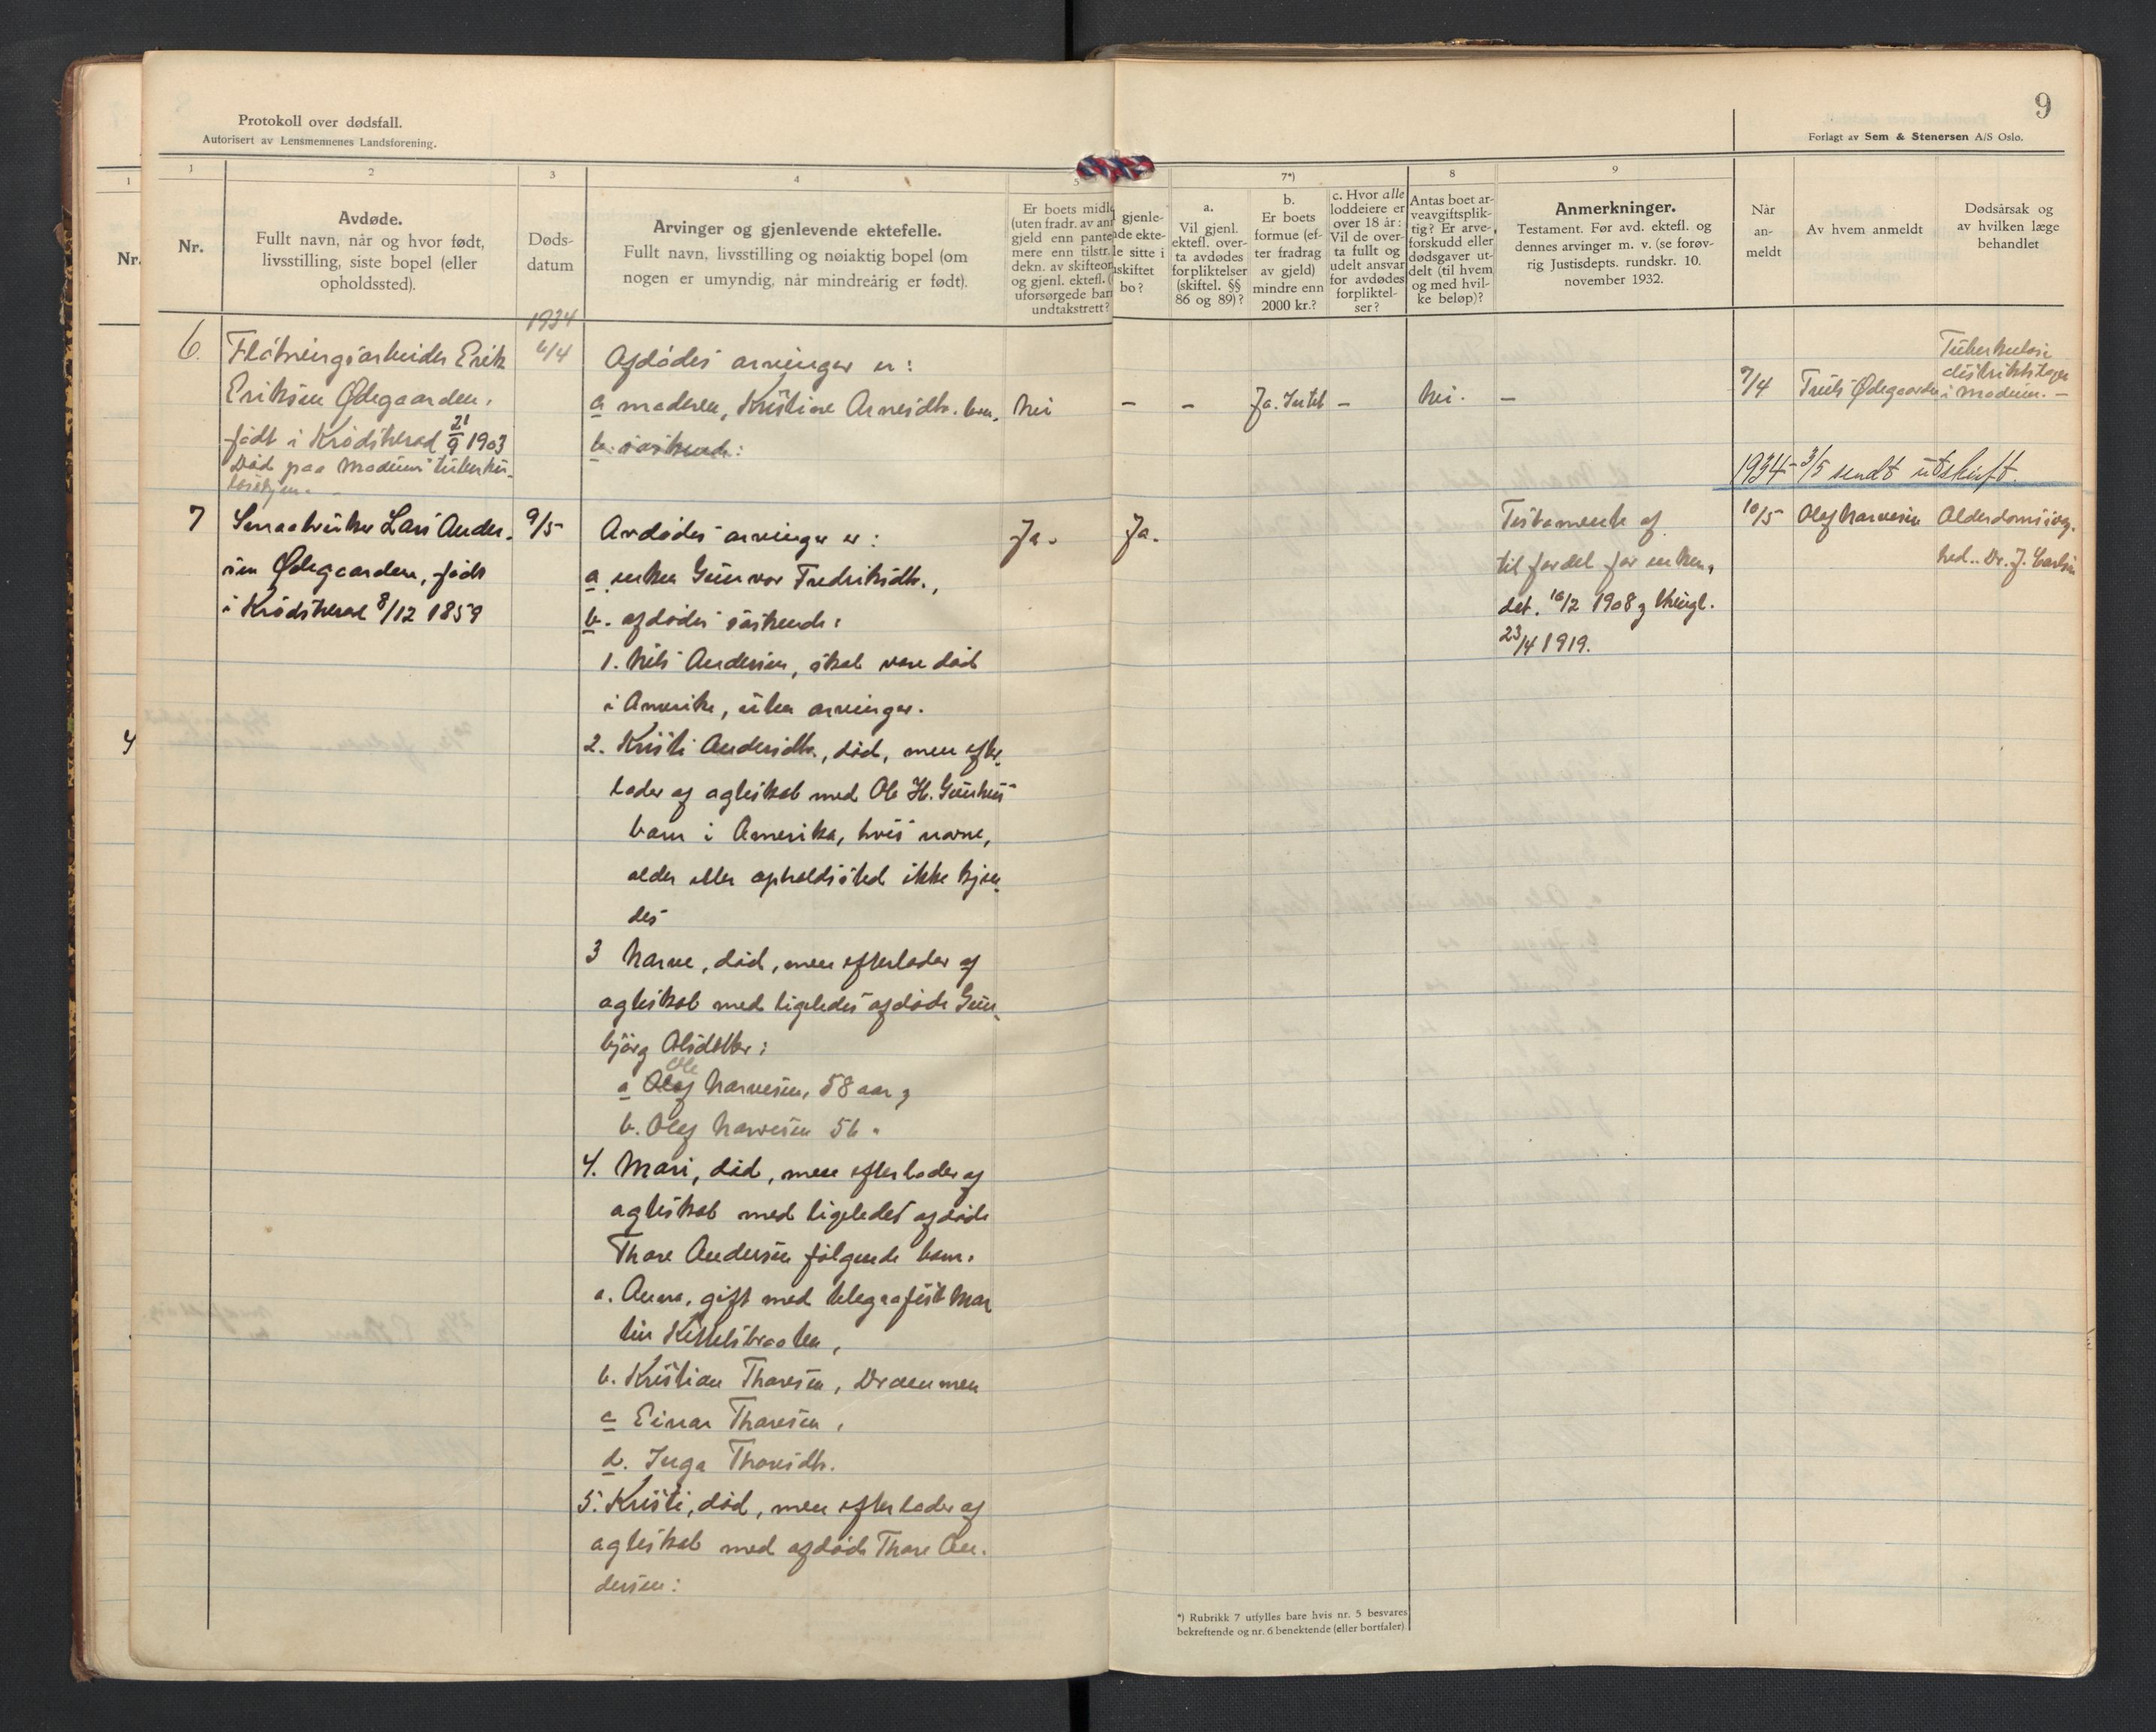 Protokoll over dødsfall.
Autorisert av Lensmennenes Landsforening.
9
Forlagt av Sem & Stenersen A/S Oslo.
1
1
2
3
4
5
7*)
8
9
Nr.
Nr.
Avdøde.
Fullt navn, når og hvor født,
livsstilling, siste bopel (eller
opholdssted).
Døds-
datum
Arvinger og gjenlevende ektefelle.
Fullt navn, livsstilling og nøiaktig bopel (om
nogen er umyndig, når mindreårig er født).
Er boets midle
(uten fradr. av ann
gjeld enn pante
mere enn tilstr.
dekn. av skifteom
og gjenl. ektefl.
uforsørgede barn
undtakstrett?
gjenle-
de ekte-
le sitte i
skiftet
bo?
a.
Vil gjenl.
ektefl. over-
ta avdødes
forpliktelser
(skiftel. §§
86 og 89)?
b.
Er boets
formue (ef-
ter fradrag
av gjeld)
mindre enn
2000 kr.?
c. Hvor alle
loddeiere er
over 18 år:
Vil de over-
ta fullt og
udelt ansvar
for avdødes
forpliktel-
ser?
Antas boet ar-
veavgiftsplik-
tig? Er arve-
forskudd eller
dødsgaver ut-
delt (til hvem
og med hvil-
ke beløp)?
Anmerkninger.
Testament. Før avd. ektefl. og
dennes arvinger m. v. (se forøv-
rig Justisdepts. rundskr. 10.
november 1932.
Når
an-
meldt
Av hvem anmeldt
Dødsårsak og
av hvilken læge
behandlet
1934
6. Fløtningsarbeider Erik
Eriksen Ødegaarden,
født i Krødsherad 21/9 1903
Død paa Modums tuberku-
losehjem.
6/4
Afdødes arvinger er:
a moderen, Kristine Arnesdtr.
b. søskende:
Nei
-
-
Ja. Intet
-
Nei.
-
7/4
Truls Ødegaarden
Tuberkulose
distriktslægen
i Modum. -
1934 - 3/5 sendt utskrift.
7
Smaabruker Lars Ander-
sen Ødegaarden, født
i Krødsherad 8/12 1859
9/5
Avdødes arvinger er:
a enken Gunvor Fredriksdtr.,
b. afdødes søskende:
1. Nils Andersen, skal være død
i Amerika, uten arvinger.
2. Kristi Andersdtr., død, men efter-
lader af ægteskab med Ole H.
barn i Amerika, hvis navne,
alder eller opholdssted ikke kjen-
des
3 Narve, død, men efterlader af
ægteskab med ligeledes afdøde Gun-
bjørg Olsdatter:
Ole
a Olaf Narvesen, 58 aar,
b. Olaf Narvesen 56 "
4. Mari, død, men efterlader af
ægteskab med ligeledes afdøde
Thore Andersen følgende barn.
a. Anna, gift med telegrafist Mar
tin Kittelsbraaten,
b. Kristian Thoresen, Drammen
c Einar Thoresen,
d. Inga Thoresdtr.
5. Kristi, død, men efterlader af
ægteskab med afdøde Thore An-
dersen:
Ja.
Ja.
Testamente af
til fordel for enken,
dat. 10/2 1908, thingl.
23/4 1919.
10/5
Olaf Narvesen
Alderdomssvag-
hed.. Dr. J.
4
*) Rubrikk 7 utfylles bare hvis nr. 5 besvares
bekreftende og nr. 6 benektende (eller bortfaler).